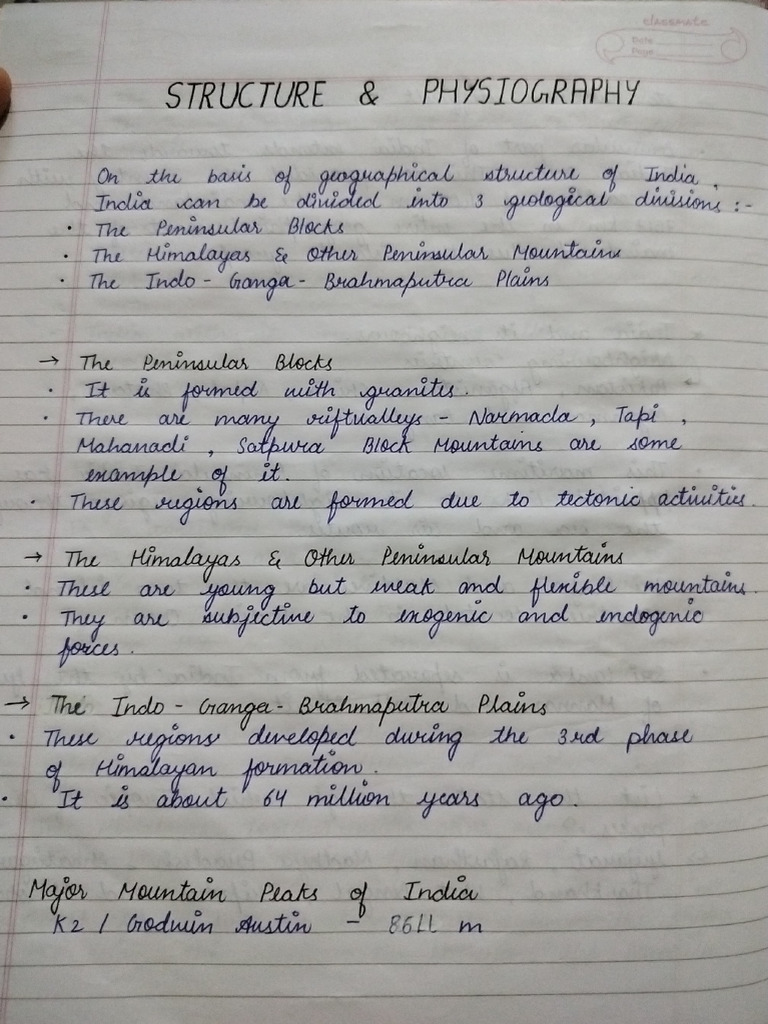 classmate
Date
Page
STRUCTURE & PHYSIOGRAPHY
On the basis of geographical structure of India,
India can be divided into 3 geological divisions :-
• The Peninsular Blocks
• The Himalayas & Other Peninsular Mountains
• The Indo - Ganga - Brahmaputra Plains
→ The Peninsular Blocks
• It is formed with granites.
• There are many riftvalleys - Narmada, Tapi,
Mahanadi, Satpura Block Mountains are some
example of it.
• These regions are formed due to tectonic activities.
→ The Himalayas & Other Peninsular Mountains
• These are young but weak and flexible mountains.
• They are subjective to exogenic and endogenic
forces.
→ The Indo - Ganga - Brahmaputra Plains
• These regions developed during the 3rd phase
of Himalayan formation.
• It is about 64 million years ago.
Major Mountain Peaks of India
K2 / Godwin Austin - 8611 m